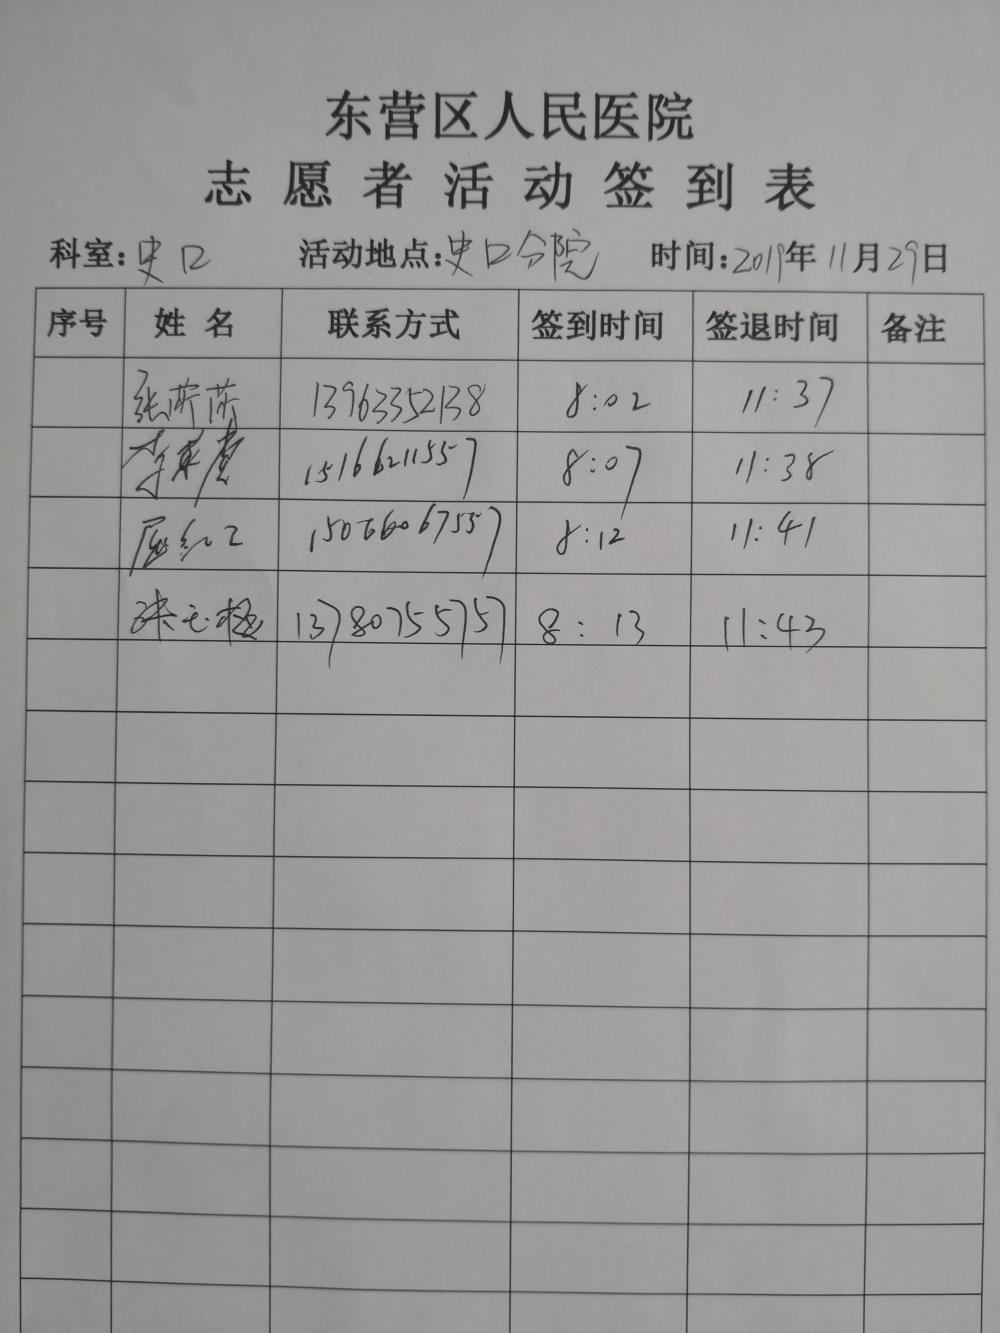 东营区人民医院
志愿者活动签到表
科室:史口 活动地点:史口分院 时间:2019年11月29日
序号 姓名 联系方式 签到时间 签退时间 备注
张 13963352138 8:02 11:37
李 15166211557 8:07 11:38
屈红 15066067557 8:12 11:41
13780755757 8:13 11:43